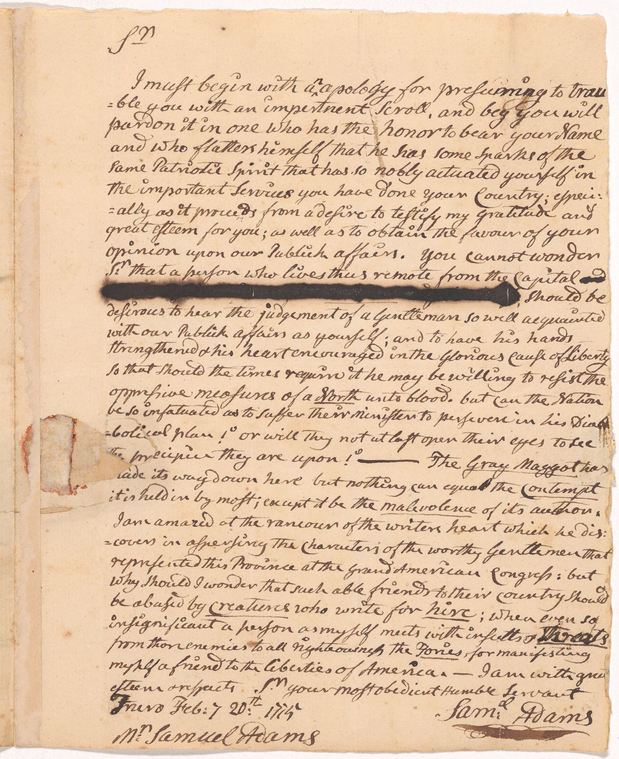 Sr
I must begin with an apology for presuming to trou
=ble you with an impertinent Scroll, and beg you will
pardon it in one who has the honor to bear your Name
and who flatters himself that he has some sparks of the
same Patriotic Spirit that has so nobly actuated yourself in
the important Services you have done your Country; espeic=
=ally as it proceeds from a desire to testify my Gratitude and
great esteem for you; as well as to obtain the favour of your
opinion upon our Publick affairs. You cannot wonder
Sr that a person who lives thus remote from the Capital and
should be
desirous to hear the judgement of a Gentleman so well acquainted
with our Publick affairs as yourself; and to have his hands
strengthened & his heart encouraged in the glorious cause of Liberty
so that should the times require it he may be willing to resist the
oppressive measures of a North unto blood. but can the Nation
be so infatuated as to suffer their minister to persevere in his Diab
=bolical plan! or will they not at last open their eyes to see
the precipice they are upon! — The Gray Maggot has
made its way down here but nothing can equal the contempt
it is held in by most; except it be the malevolence of its author.
I am amazed at the rancour of the writers heart which he dis=
=covers in aspersing the characters of the worthy Gentlemen that
represented this Province at the grand American Congress: but
why should I wonder that such able friends to their Country should
be abused by creatures who write for hire; when even so
insignificant a person as myself meets with insults & threats
from those enemies to all righteousness the Tories, for manifesting
myself a friend to the Liberties of America. — I am with great
esteem & respects Sr, your most obedient Humble Servant
Truro Feb:y 20th 1775 Saml Adams
Mr Samuel Adams